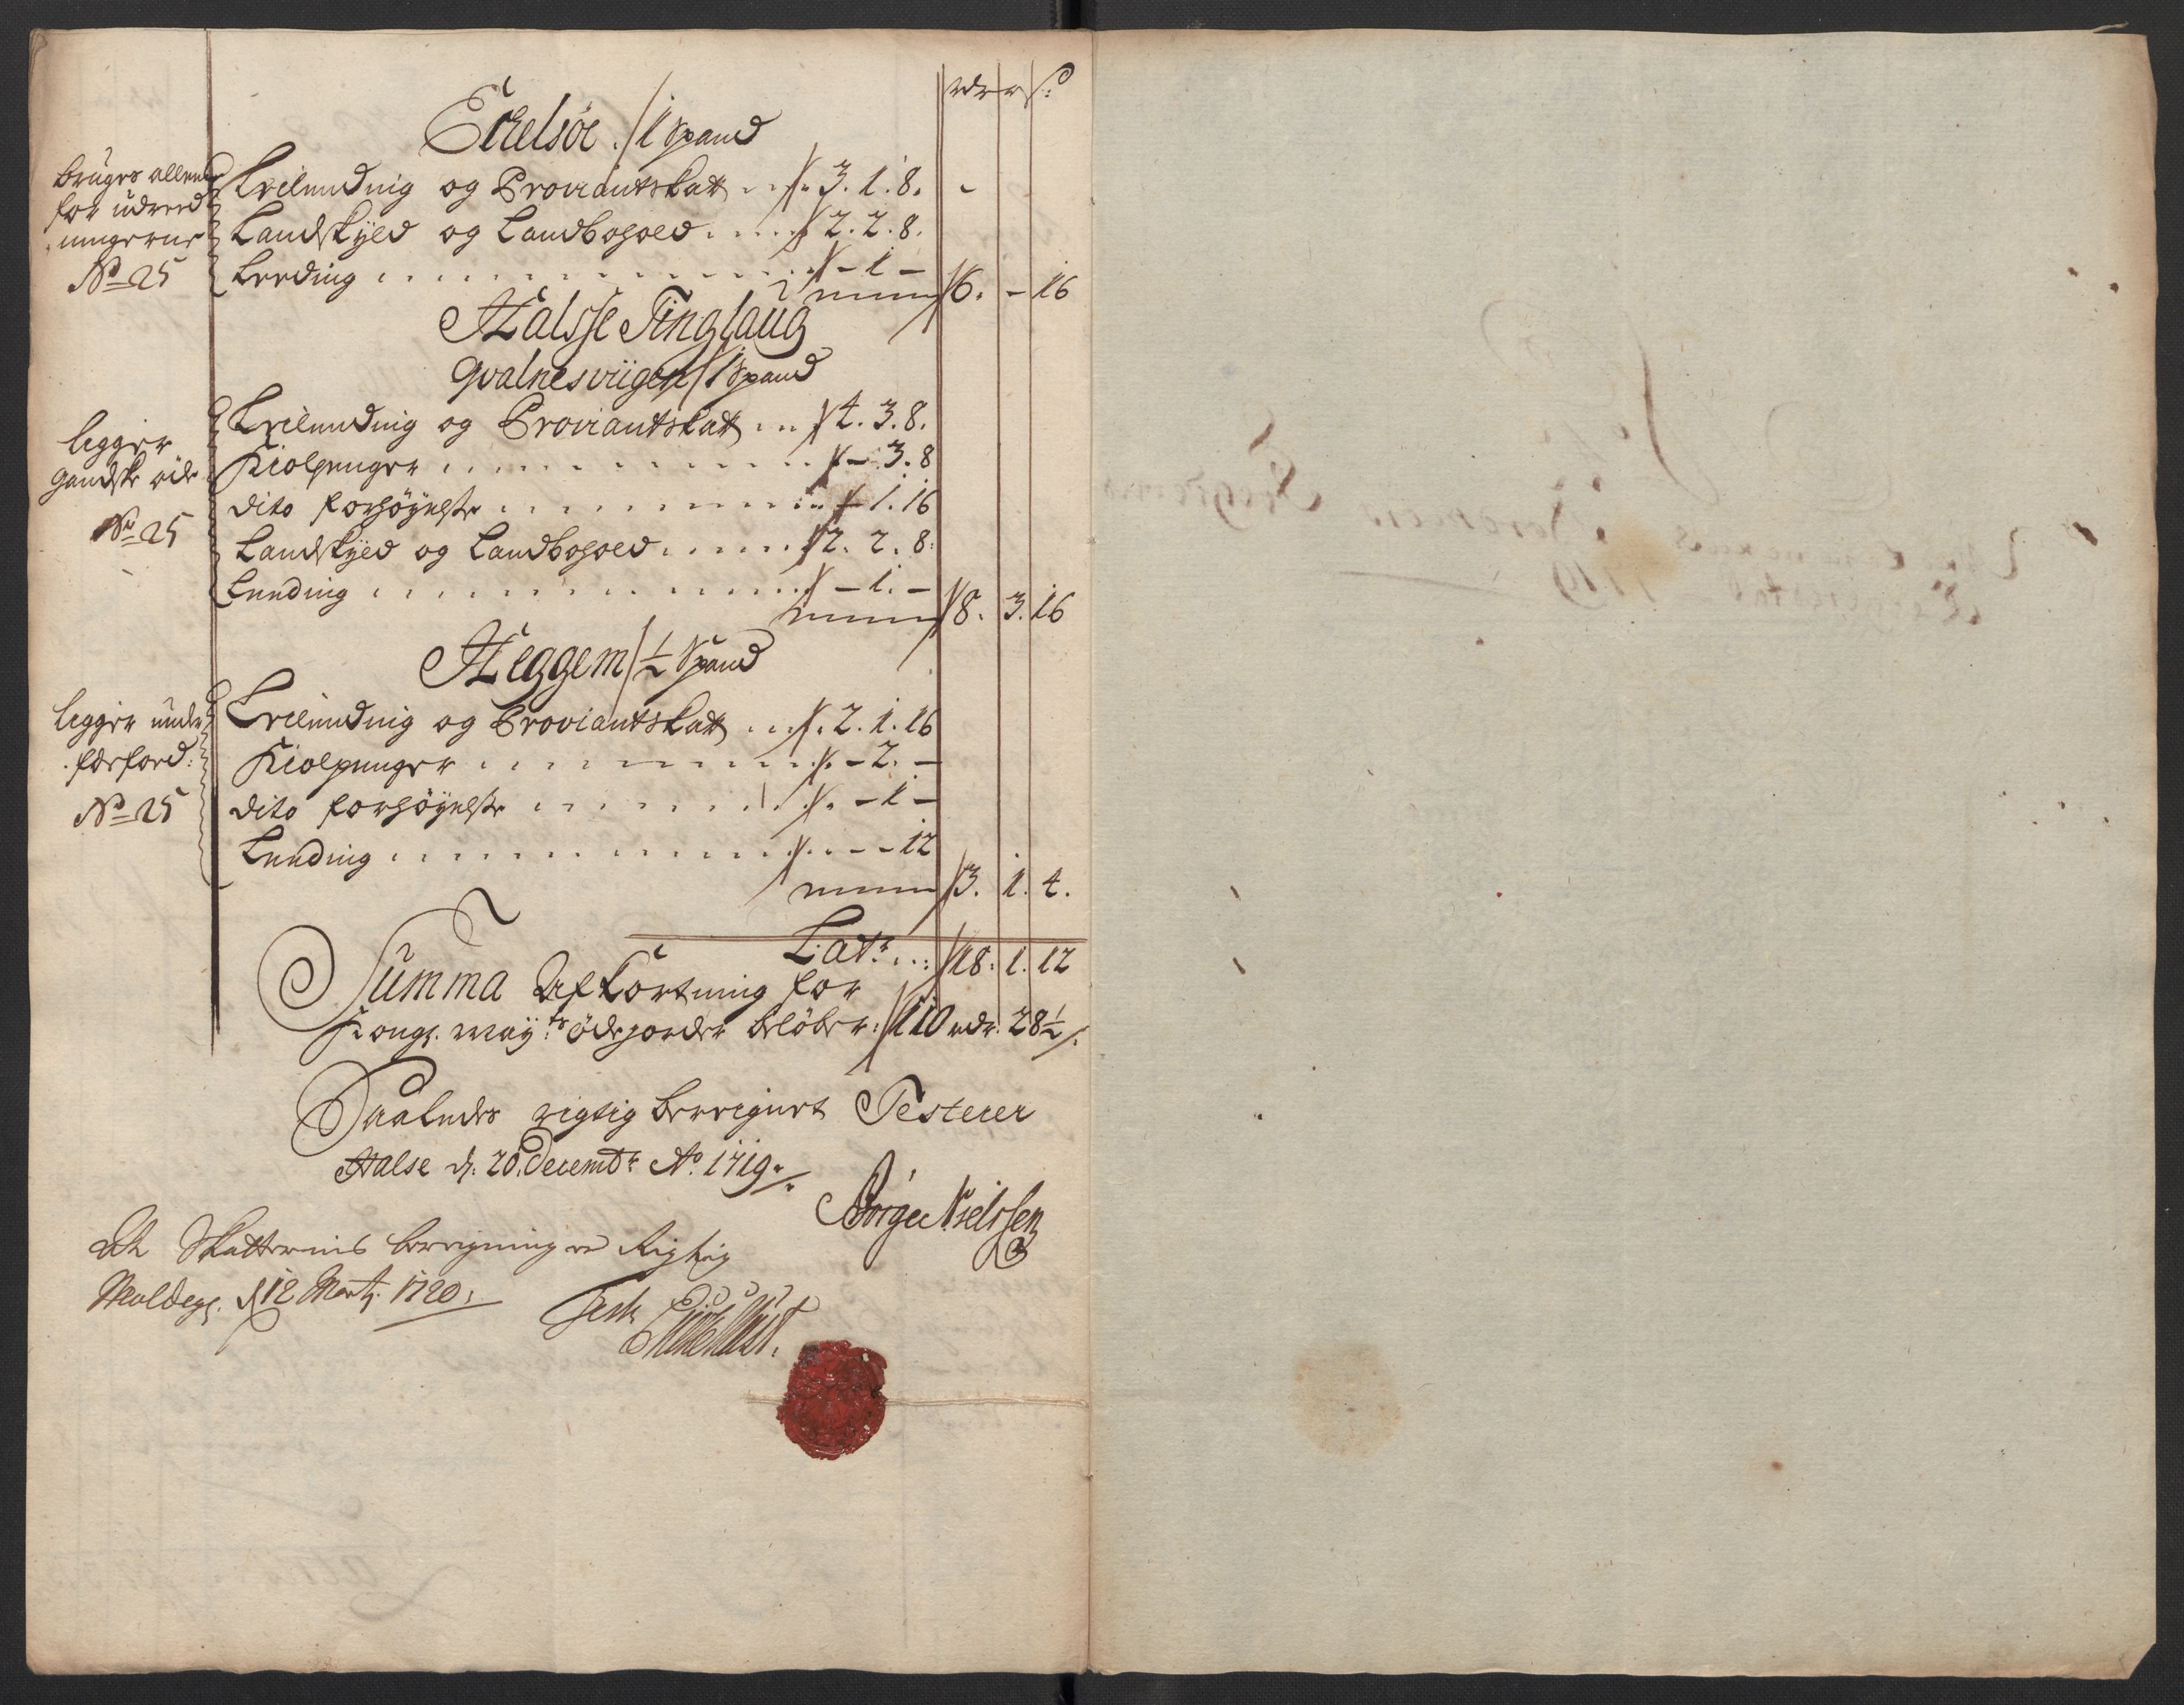 rdr r ß:
Echelsöe /1 Spand
bruges allene
for udreed
ningerne
No 25
Leilending og Proviantskatt 3. 1. 8.
Landskyld og Landbohold 2. 2. 8.
Leeding - 1 -
6. - 16
Halsse Tinglaug
Qvalnesviigen /1 Spand
ligger
gandske øde
No 25
Leilending og Proviantskatt 4. 3. 8.
Kiølpenger - 3. 8
dito forhöyelse 1. 16
Landskyld og Landbohold 2. 2. 8.
Leeding - 1. -
8. 3. 16
Heggem /½ Spand
ligger under
No 25
Leilending og Proviantskatt 2. 1. 16
Kiolpenger - 2. -
dito forhöyelse - 1 -
Leeding - - 12
3. 1. 4.
Lat: 18. 1. 12
Summa Afkortning for
Kongl. Mayts ödejorder belöber: 110 rdr. 28½ ß.
Saaledes rigtig beregnet Testerer
Halse d: 20 Decembr Ao 1719
Börge Nielssen
At Skatternis beregning er Rigtig
Moldegr. d 12 Marty 1720:
Test